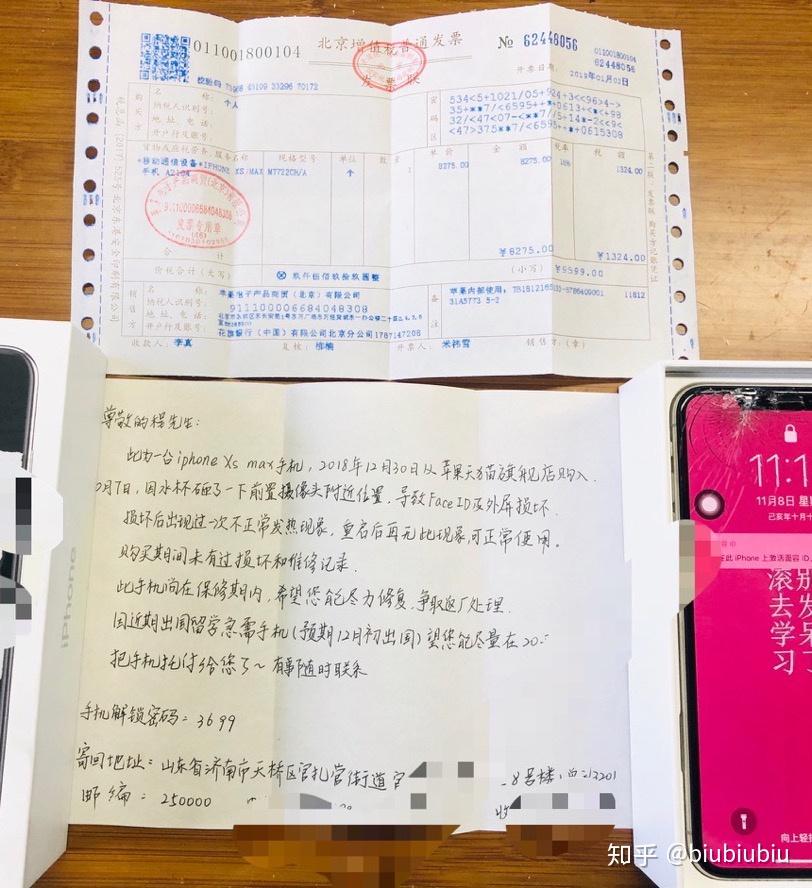 011001800104
北京增值税普通发票
发票联
№ 62448056
011001800104
62448056
开票日期:
2019年01月03日
校验码 43109 33296 70172
购买方
名 称: 个人
纳税人识别号:
地 址、电 话:
开户行及账号:
密码区
货物或应税劳务、服务名称
规格型号
单位
数量
单价
金额
税率
税额
*移动通信设备*IPHONE XS MAX MT722CH/A
手机 A2104
个
1
8275.00
8275.00
16%
1324.00
发票专用章
合 计
¥8275.00
¥1324.00
价税合计(大写)
玖仟伍佰玖拾玖圆整
(小写) ¥9599.00
销售方
名 称: 苹果电子产品商贸(北京)有限公司
纳税人识别号: 911100006684048308
地 址、电 话:
开户行及账号: 花旗银行(中国)有限公司北京分公司1787147208
备注
苹果内部使用:
收款人: 李真
复核: 柳楠
开票人: 米祎雪
销售方:(章)
第二联:发票联 购买方记账凭证
尊敬的程先生:
此为一台iphone Xs max手机,2018年12月30日从苹果天猫旗舰店购入.
月7日,因水杯砸了一下前置摄像头附近位置,导致Face ID及外屏损坏.
损坏后出现过一次不正常发热现象,重启后再无此现象,可正常使用。
购买期间未有过损坏和维修记录.
此手机尚在保修期内,希望您能尽力修复,争取返厂处理.
因近期出国留学急需手机(预期12月初出国)望您能尽量在20
把手机托付给您了~ 有事随时联系
手机解锁密码: 3699
寄回地址: 山东省济南市天桥区官扎营街道官
8号楼
邮编: 250000
iPhone
11:1
11月8日 星
己亥年十月十
在此 iPhone 上激活面容 ID
滚别
去发
学呆
习了
向上轻
知乎 @biubiubiu